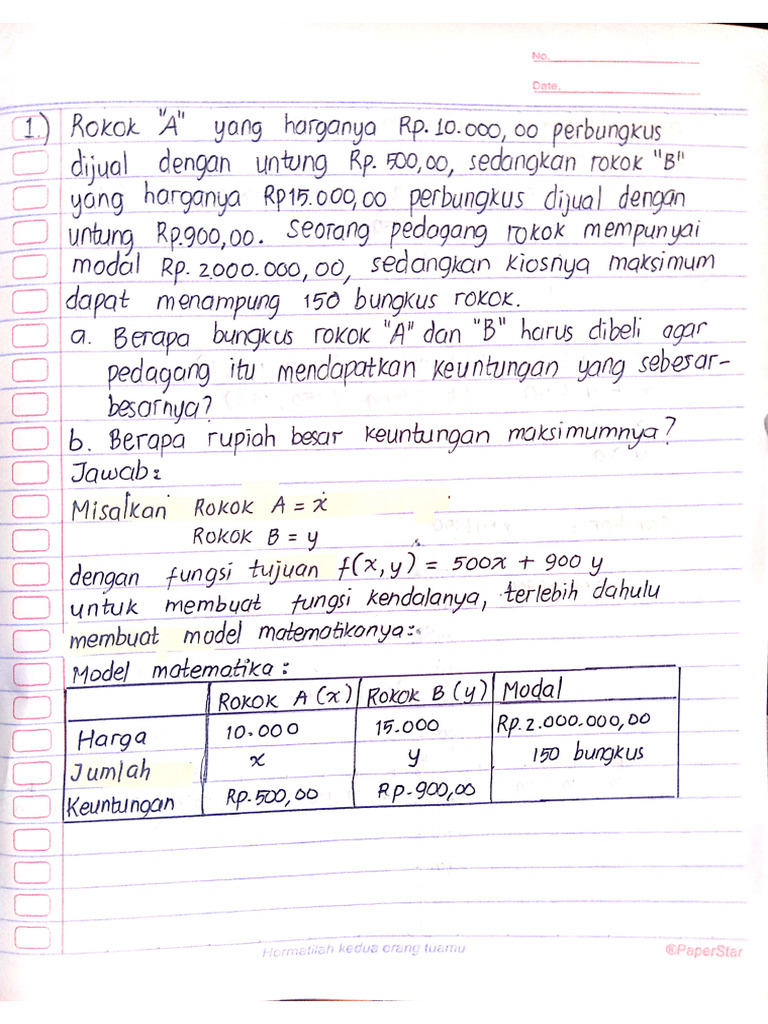 No.
Date.
1.) Rokok "A" yang harganya Rp. 10.000,00 perbungkus
dijual dengan untung Rp. 500,00, sedangkan rokok "B"
yang harganya Rp15.000,00 perbungkus dijual dengan
untung Rp.900,00. Seorang pedagang rokok mempunyai
modal Rp. 2.000.000,00, sedangkan kiosnya maksimum
dapat menampung 150 bungkus rokok.
a. Berapa bungkus rokok "A" dan "B" harus dibeli agar
pedagang itu mendapatkan keuntungan yang sebesar-
besarnya?
b. Berapa rupiah besar keuntungan maksimumnya?
Jawab:
Misalkan Rokok A = x
Rokok B = y
dengan fungsi tujuan f(x,y) = 500x + 900 y
untuk membuat fungsi kendalanya, terlebih dahulu
membuat model matematikanya:
Model matematika:
Rokok A (x) Rokok B (y) Modal
Harga 10.000 15.000 Rp. 2.000.000,00
Jumlah x y 150 bungkus
Keuntungan Rp.500,00 Rp.900,00
Hormatilah kedua orang tuamu ®PaperStar